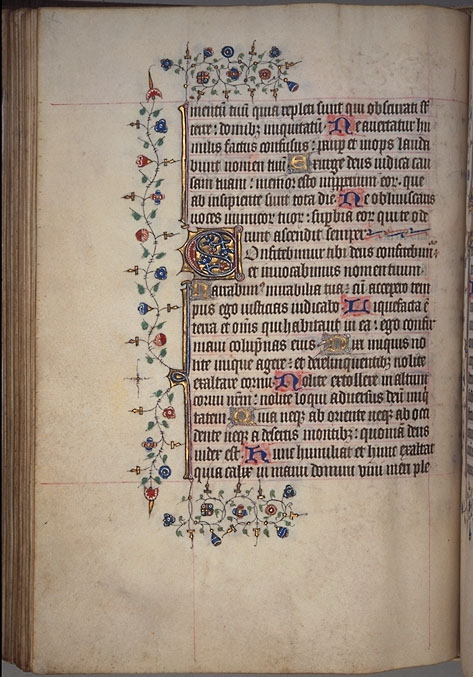 mentū tuū quia repleti sunt qui obscurati st̄
terre : domibz iniquitatū : Ne auertatur hu
milis factus confusus : paup et inops lauda
bunt nomen tuū Exurge deus iudica cau
sam tuam : memor esto improperium eor · que
ab insipiente sunt tota die Ne obliuiscaris
uoces inimicor tuor : supbia eor qui te ode
runt ascendit semper
Confitebimur tibi deus confitebim̄
et inuocabimus nomen tuum
Narrabim mirabilia tua : cū accepero tem
pus ego iusticias iudicabo Liquefacta ē
terra et om̄s qui habitant in ea : ego confir
maui colupnas eius Dixi iniquis no
lite inique agere : et derelinquentibz nolite
exaltare cornu Nolite extollere in altum
cornu urm̄ : nolite loqui aduersus deū iniq
tatem Quia neqz ab oriente neqz ab occi
dente neqz a desertis montibz : quoniā deus
iudex est Hunc humiliat et hunc exaltat
quia calix in manu domini uini meri ple